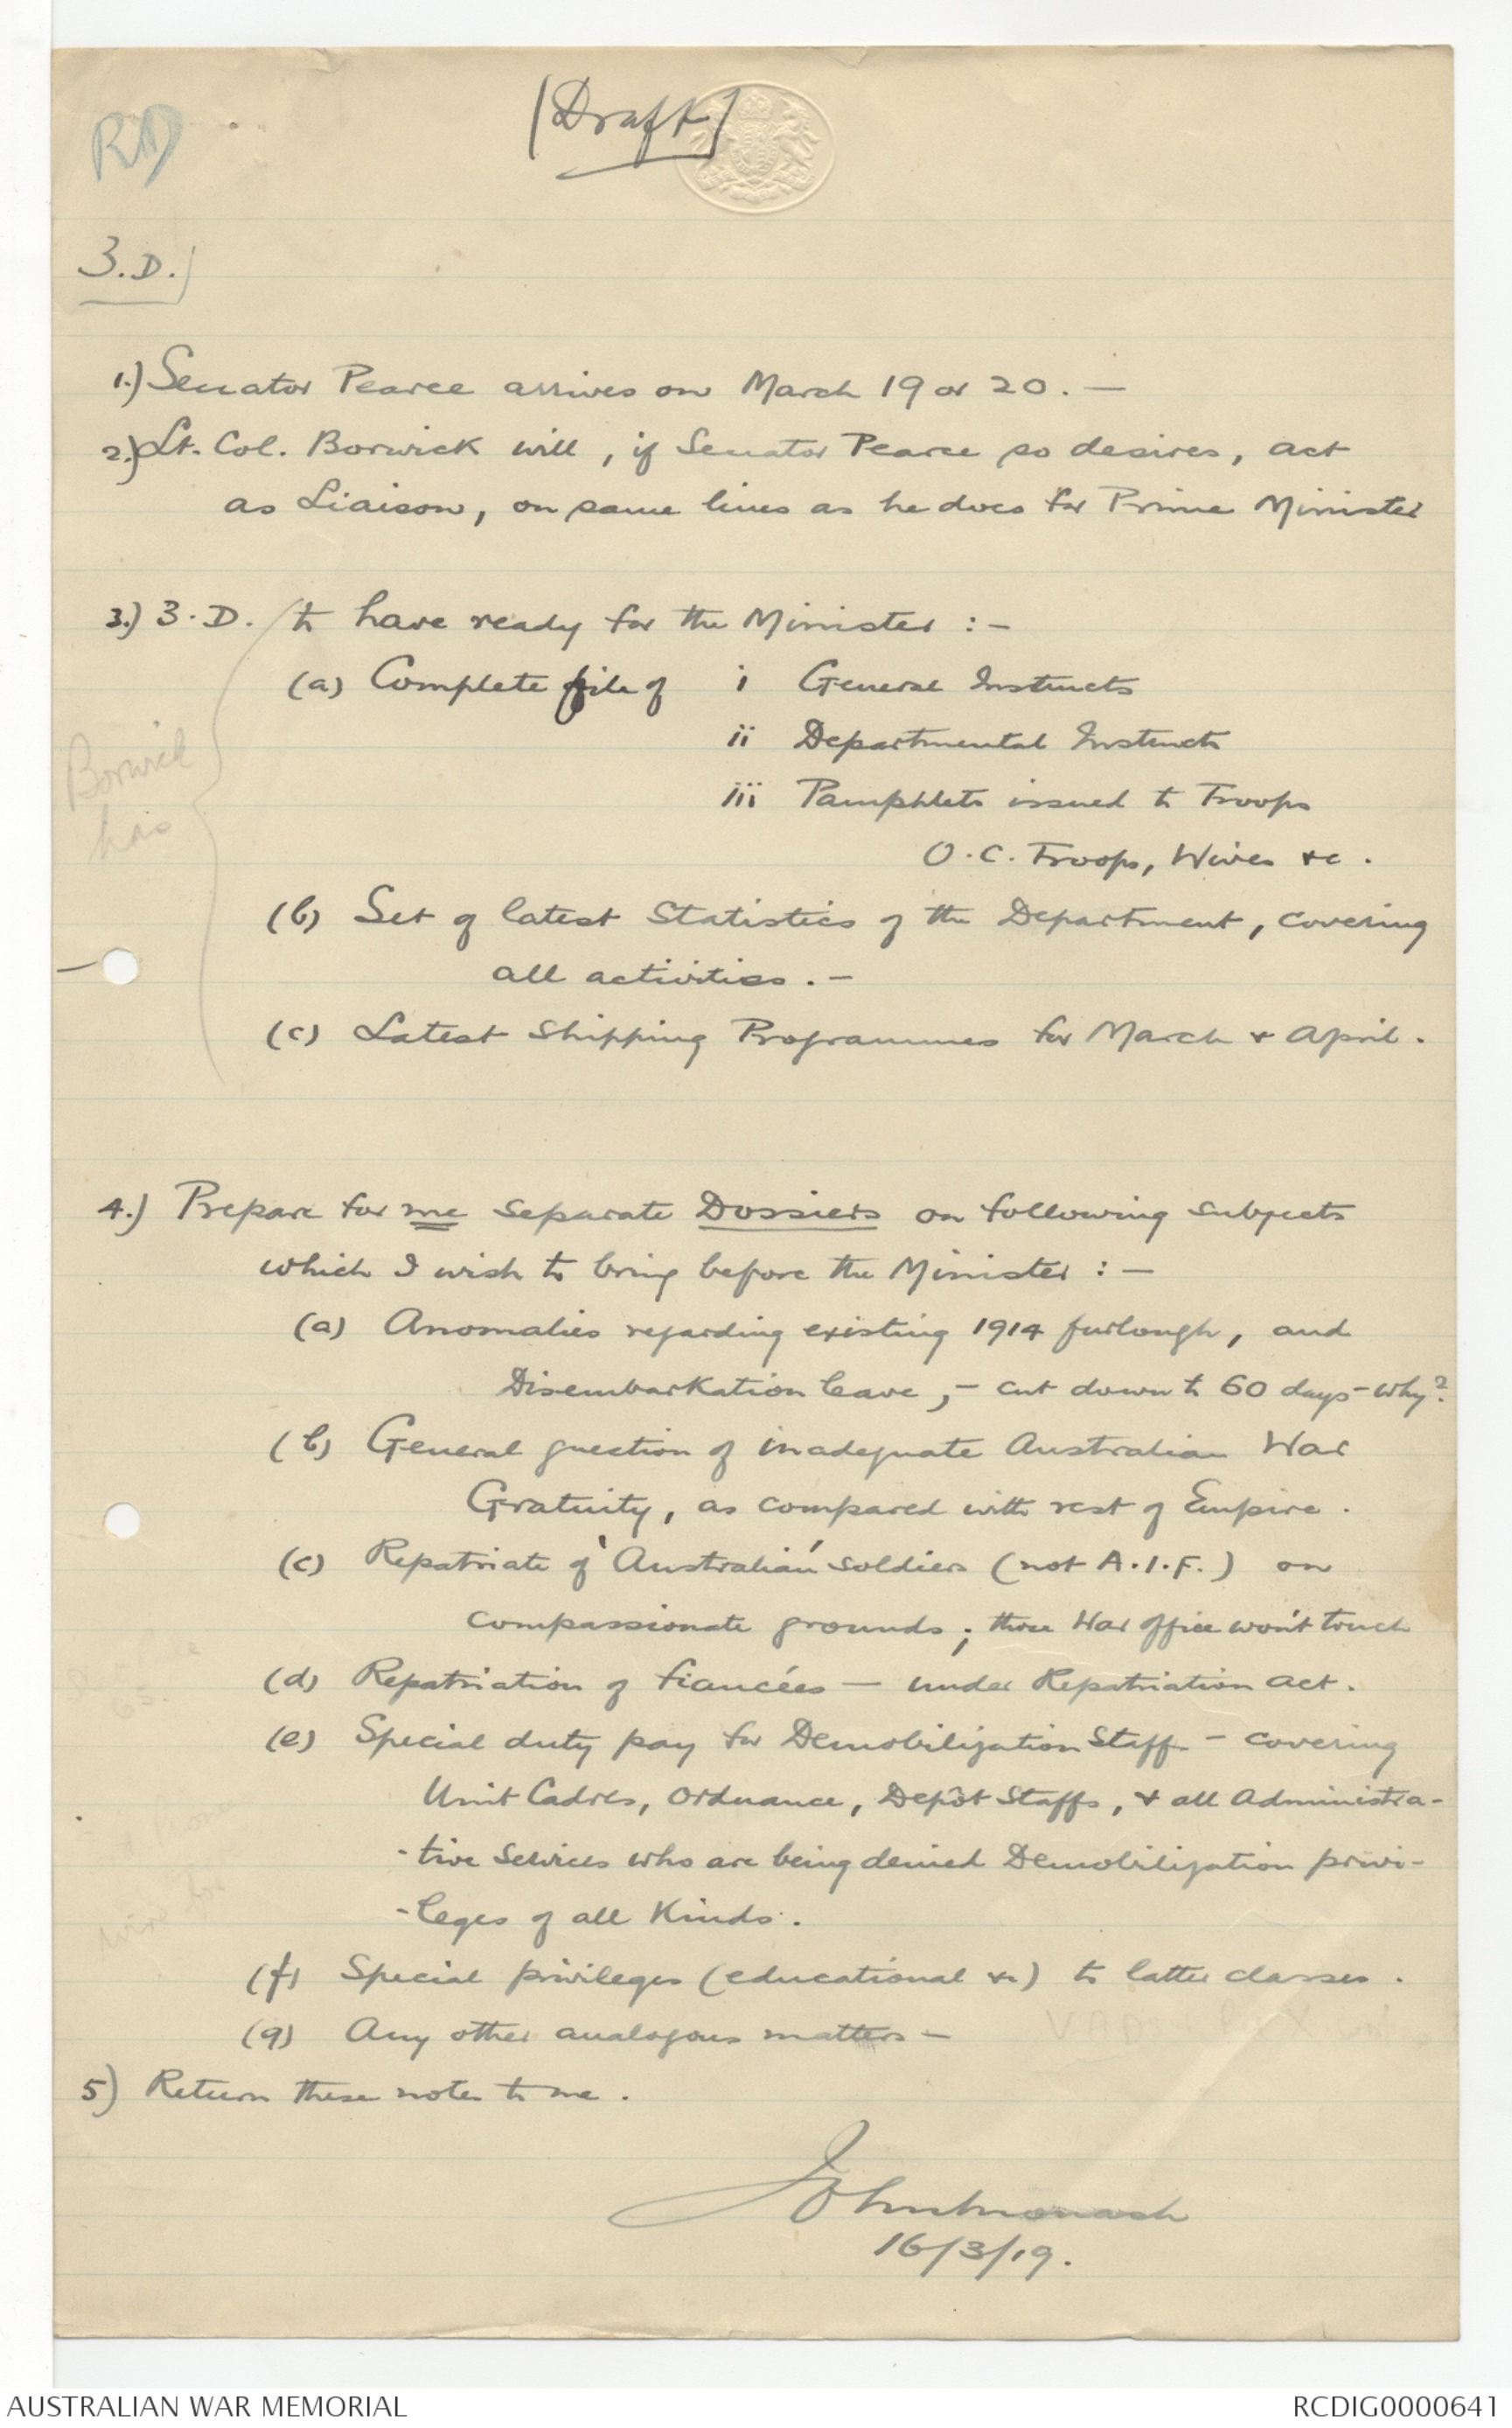 [Draft]
RD
3.D.
1.) Senator Pearce arrives on March 19 or 20. —
2.) Lt. Col. Borwick will, if Senator Pearce so desires, act
as Liaison, on same lines as he does for Prime Minister
3.) 3.D. to have ready for the Minister :—
(a) Complete file of i General Instructs
ii Departmental Instructs
iii Pamphlets issued to Troops
O.C. Troops, Wives &c.
Borwick
has
(b) Set of latest Statistics of the Department, covering
all activities. —
(c) Latest Shipping Programmes for March & April.
4.) Prepare for me separate Dossiers on following subjects
which I wish to bring before the Minister :—
(a) Anomalies regarding existing 1914 furlough, and
Disembarkation leave, — cut down to 60 days — why?
(b) General question of inadequate Australian War
Gratuity, as compared with rest of Empire.
(c) Repatriate of 'Australian' soldiers (not A.I.F.) on
compassionate grounds; those War Office won't touch
(d) Repatriation of fiancées — under Repatriation Act.
(e) Special duty pay for Demobilization Staff — covering
Unit Cadres, Ordnance, Depôt Staffs, & all Administra-
-tive Services who are being denied Demobilization privi-
-leges of all kinds.
(f) Special privileges (educational &c) to latter classes.
(g) Any other analogous matters —
5) Return these notes to me.
John Monash
16/3/19.
AUSTRALIAN WAR MEMORIAL
RCDIG0000641